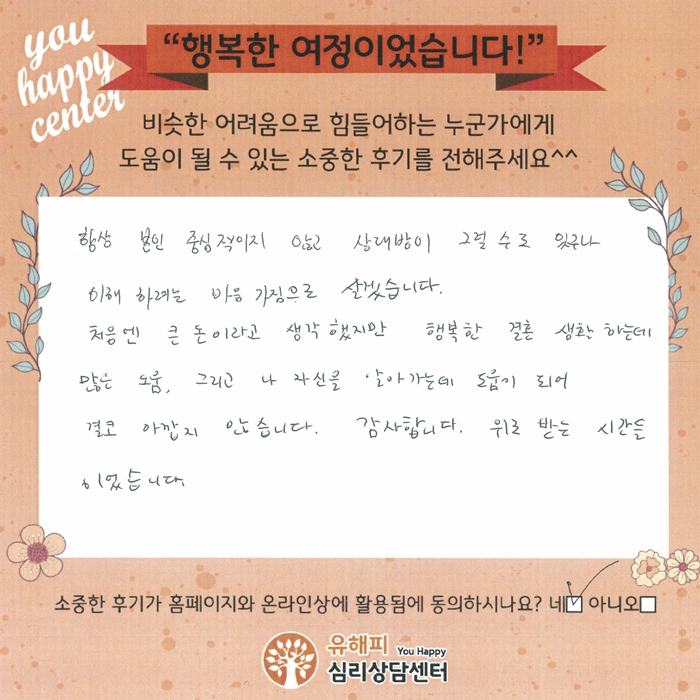 you
happy
center
“행복한 여정이었습니다!”
비슷한 어려움으로 힘들어하는 누군가에게
도움이 될 수 있는 소중한 후기를 전해주세요^^
항상 본인 중심적이지 않고 상대방이 그럴 수도 있구나
이해 하려는 마음 가짐으로 살겠습니다.
처음엔 큰 돈이라고 생각 했지만 행복한 결혼 생활 하는데
많은 도움, 그리고 나 자신을 알아가는데 도움이 되어
결코 아깝지 않습니다. 감사합니다. 위로 받는 시간들
이었습니다.
소중한 후기가 홈페이지와 온라인상에 활용됨에 동의하시나요? 네☑ 아니오☐
유해피 You Happy
심리상담센터